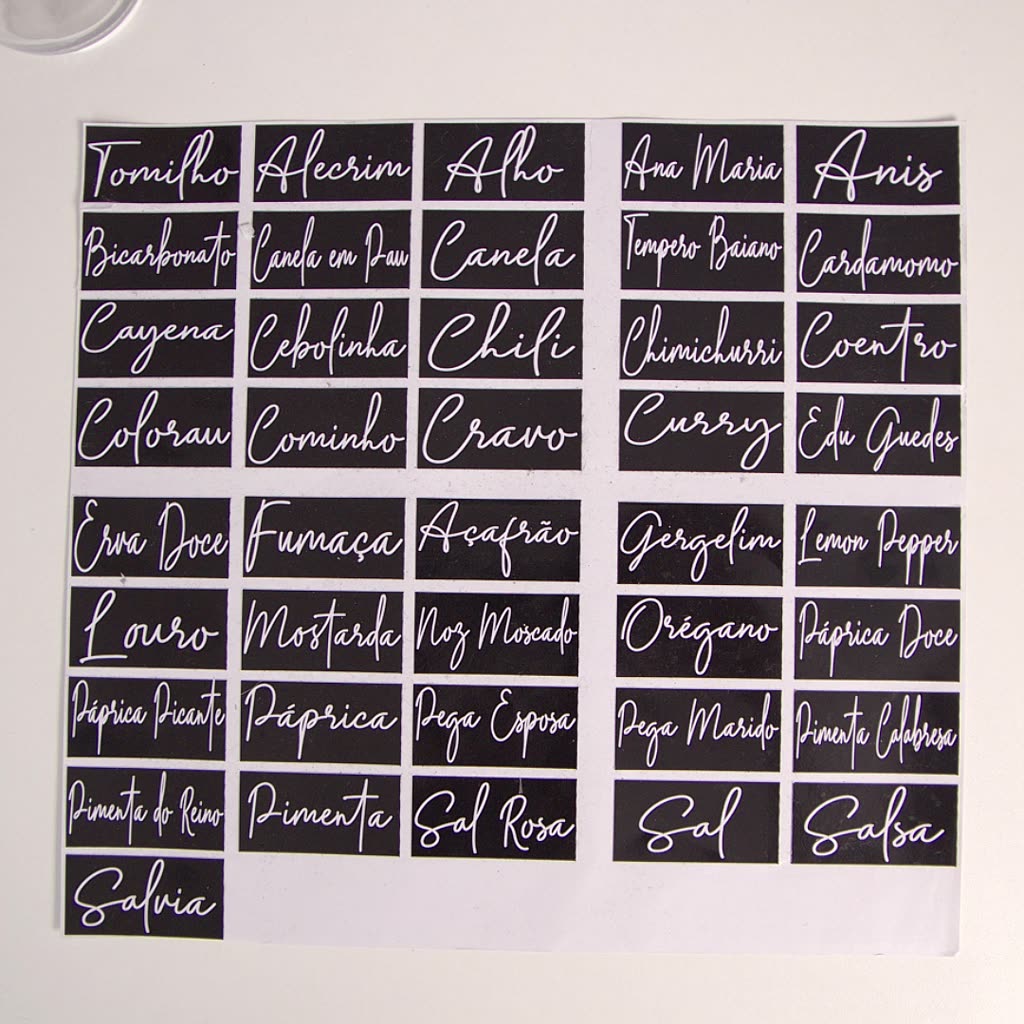 Tomilho
Alecrim
Alho
Ana Maria
Anis
Bicarbonato
Canela em Pau
Canela
Tempero Baiano
Cardamomo
Cayena
Cebolinha
Chili
Chimichurri
Coentro
Colorau
Cominho
Cravo
Curry
Edu Guedes
Erva Doce
Fumaça
Açafrão
Gergelim
Lemon Pepper
Louro
Mostarda
Noz Moscado
Orégano
Páprica Doce
Páprica Picante
Páprica
Pega Esposa
Pega Marido
Pimenta Calabresa
Pimenta do Reino
Pimenta
Sal Rosa
Sal
Salsa
Salvia